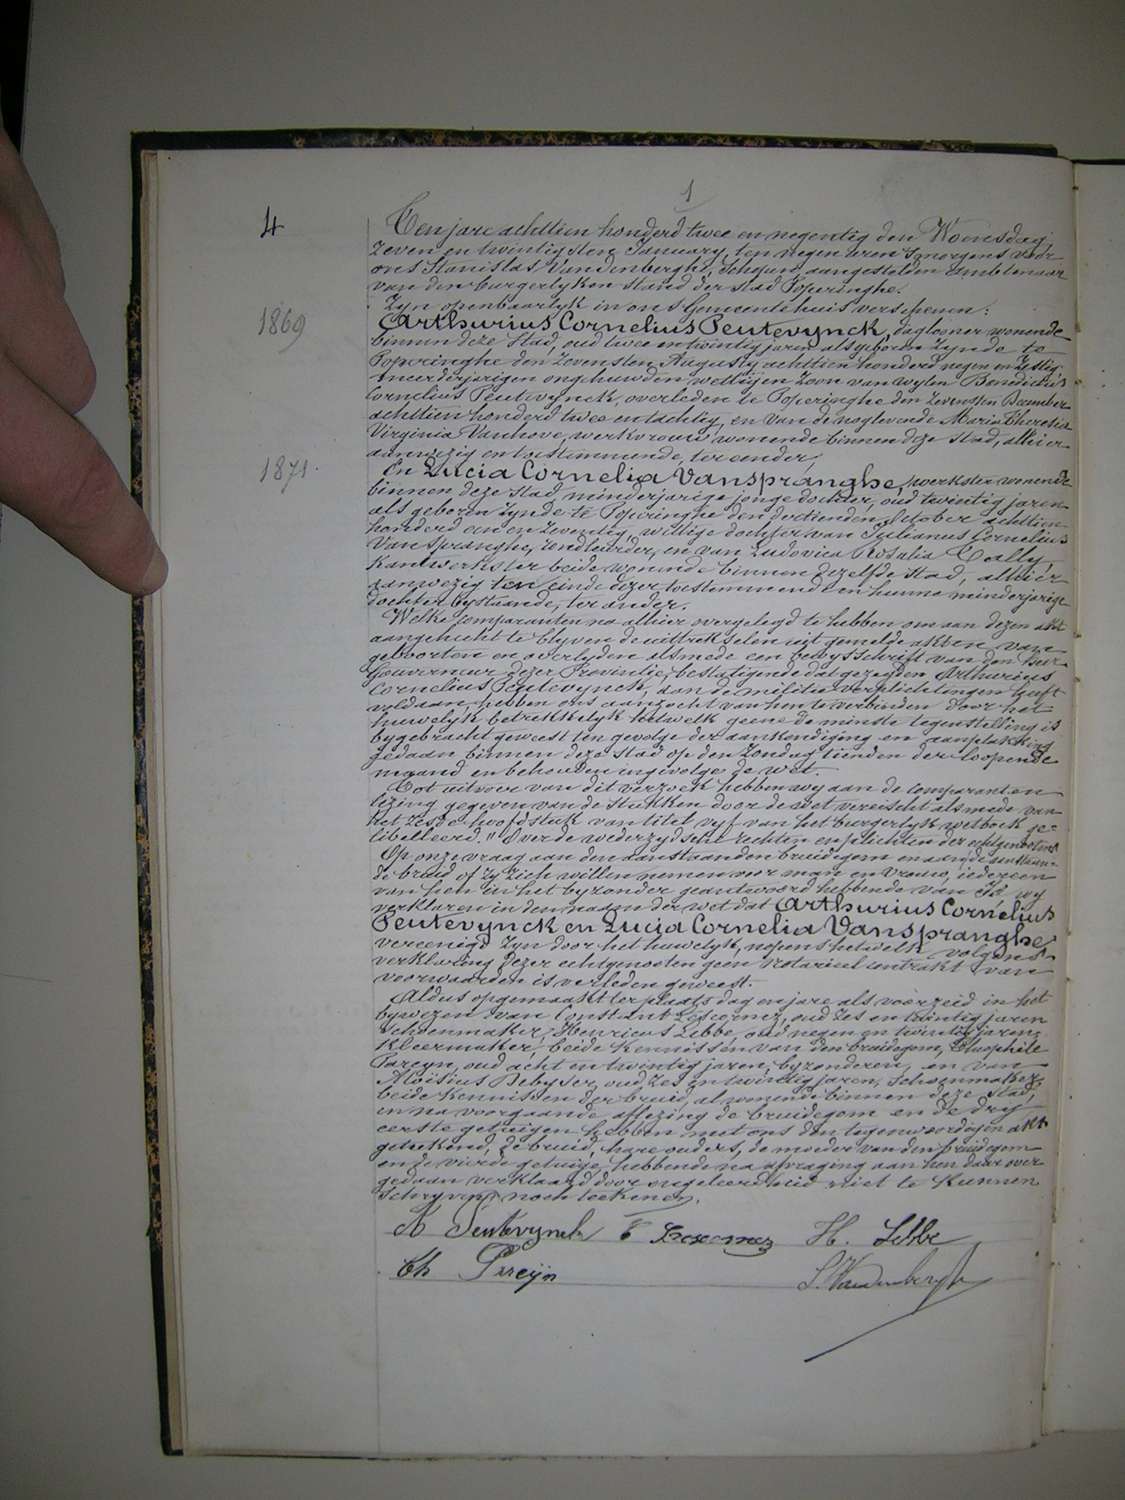 1
4
Ten jare achttien honderd twee en negentig den Woensdag,
zeven en twintigsten January, ten negen uren smorgens voor
ons Stanislas Vandenberghe, Schepene, aangestelden Ambtenaar
van den burgerlyken stand der stad Poperinghe.
Zyn openbaarlyk in ons Gemeentehuis verschenen:
1869
Arthurius Cornelius Peutevynck, daglooner wonende
binnen deze Stad, oud twee en twintig jaren als geboren zynde te
Poperinghe den zevensten Augusty achttien honderd negen en zestig
meerderjarigen ongehuwden wettigen zoon van wylen Benedictus
Cornelius Peutevynck, overleden te Poperinghe den zevensten December
achttien honderd twee en tachtig, en van de nogelevende Maria Theresia
Virginia Vanhove, werkvrouw wonende binnen deze Stad, alhier
aanwezig en toestemmende, ter eender,
1871.
En Lucia Cornelia Vanspranghe, werkster wonende
binnen deze Stad, minderjarige jonge dochter, oud twintig jaren
als geboren zynde te Poperinghe den dertienden October achttien
honderd een en zeventig, wettige dochter van Julianus Cornelius
Vanspranghe, zandleurder, en van Ludovica Rosalia Cally,
kantwerkster beide wonende binnen dezelfde stad, alhier
aanwezig ten einde dezer toestemmende en hunne minderjarige
dochter bystaande, ter ander.
Welke comparanten na alhier overgelegd te hebben om aan dezen akt
aangehecht te blyven de uittrekselen uit gemelde akten van
geboorten en overlyden alsmede een bewysschrift van den heer
Gouverneur dezer Provintie, bestatigende dat gezegden Arthurius
Cornelius Peutevynck, aan de militie verplichtingen heeft
voldaan, hebben ons aanzocht van hen te verbinden door het
huwelyk betrekkelyk hetwelk geene de minste tegenstelling is
bygebracht geweest ten gevolge der aankondiging en aanplakking
gedaan binnen deze stad op den Zondag tienden der loopende
maand en behouden ingevolge de wet.
Tot uitvoer van dit verzoek hebben wy aan de comparanten
lezing gegeven van de stukken door de wet vereischt alsmede van
het zesde hoofdstuk van titel vyf van het burgerlyk wetboek ge-
libelleerd: "Over de wederzydsche rechten en plichten der echtgenooten."
Op onze vraag aan den aanstaanden bruidegom en aan de aanstaan-
de bruid of zy zich willen nemen voor man en vrouw, iedereen
van hen in het byzonder geantwoord hebbende van Ja, wy
verklaren in den naam der wet dat Arthurius Cornelius
Peutevynck en Lucia Cornelia Vanspranghe
vereenigd zyn door het huwelyk, nopens hetwelk volgens
verklaring dezer echtgenooten geen Notarieel contrakt van
voorwaarden is verleden geweest.
Aldus opgemaakt ter plaats dag en jare als voorzeid in het
bywezen van Constant Lescornez, oud zes en twintig jaren
schoenmaker, Henricus Lebbe, oud negen en twintig jaren,
kleermaker, beide kennissen van den bruidegom, Theophile
Pareyn, oud acht en twintig jaren, byzonderen, en van
Aloïsius Debyser, oud zes en twintig jaren, schoenmaker,
beide kennissen der bruid, al wonende binnen deze Stad,
en na voorgaande aflezing de bruidegom en de dry
eerste getuigen hebben met ons den tegenwoordigen akt
geteekend, de bruid, hare ouders, de moeder van den bruidegom
en de vierde getuige, hebbende na afvraging aan hen daarover
gedaan verklaard door ongeleerdheid niet te kunnen
schryven noch teekenen.
A Peutevynck C Lescornez H. Lebbe
Th Pareyn S. Vandenberghe